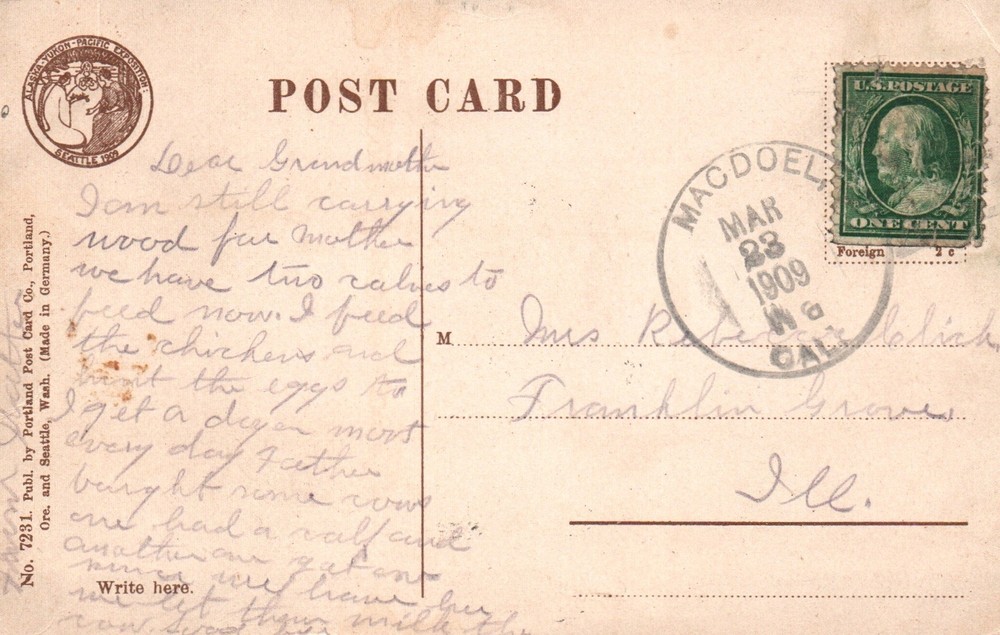 ALASKA-YUKON-PACIFIC EXPOSITION
SEATTLE 1909
POST CARD
U.S. POSTAGE
ONE CENT
Foreign 2 c
MACDOEL
MAR
23
1909
CAL
Dear Grandmother
I am still carrying
wood for Mother
we have two calves to
feed now. I feed
the chickens and
hunt the eggs
I get a dozen most
every day Father
bought some cows
one had a calf and
another one got one
since we have
we let them milk the
cow
Write here.
No. 7231. Publ. by Portland Post Card Co., Portland,
Ore. and Seattle, Wash. (Made in Germany.)
M Mrs Rebecca Click
Franklin Grove,
Ill.